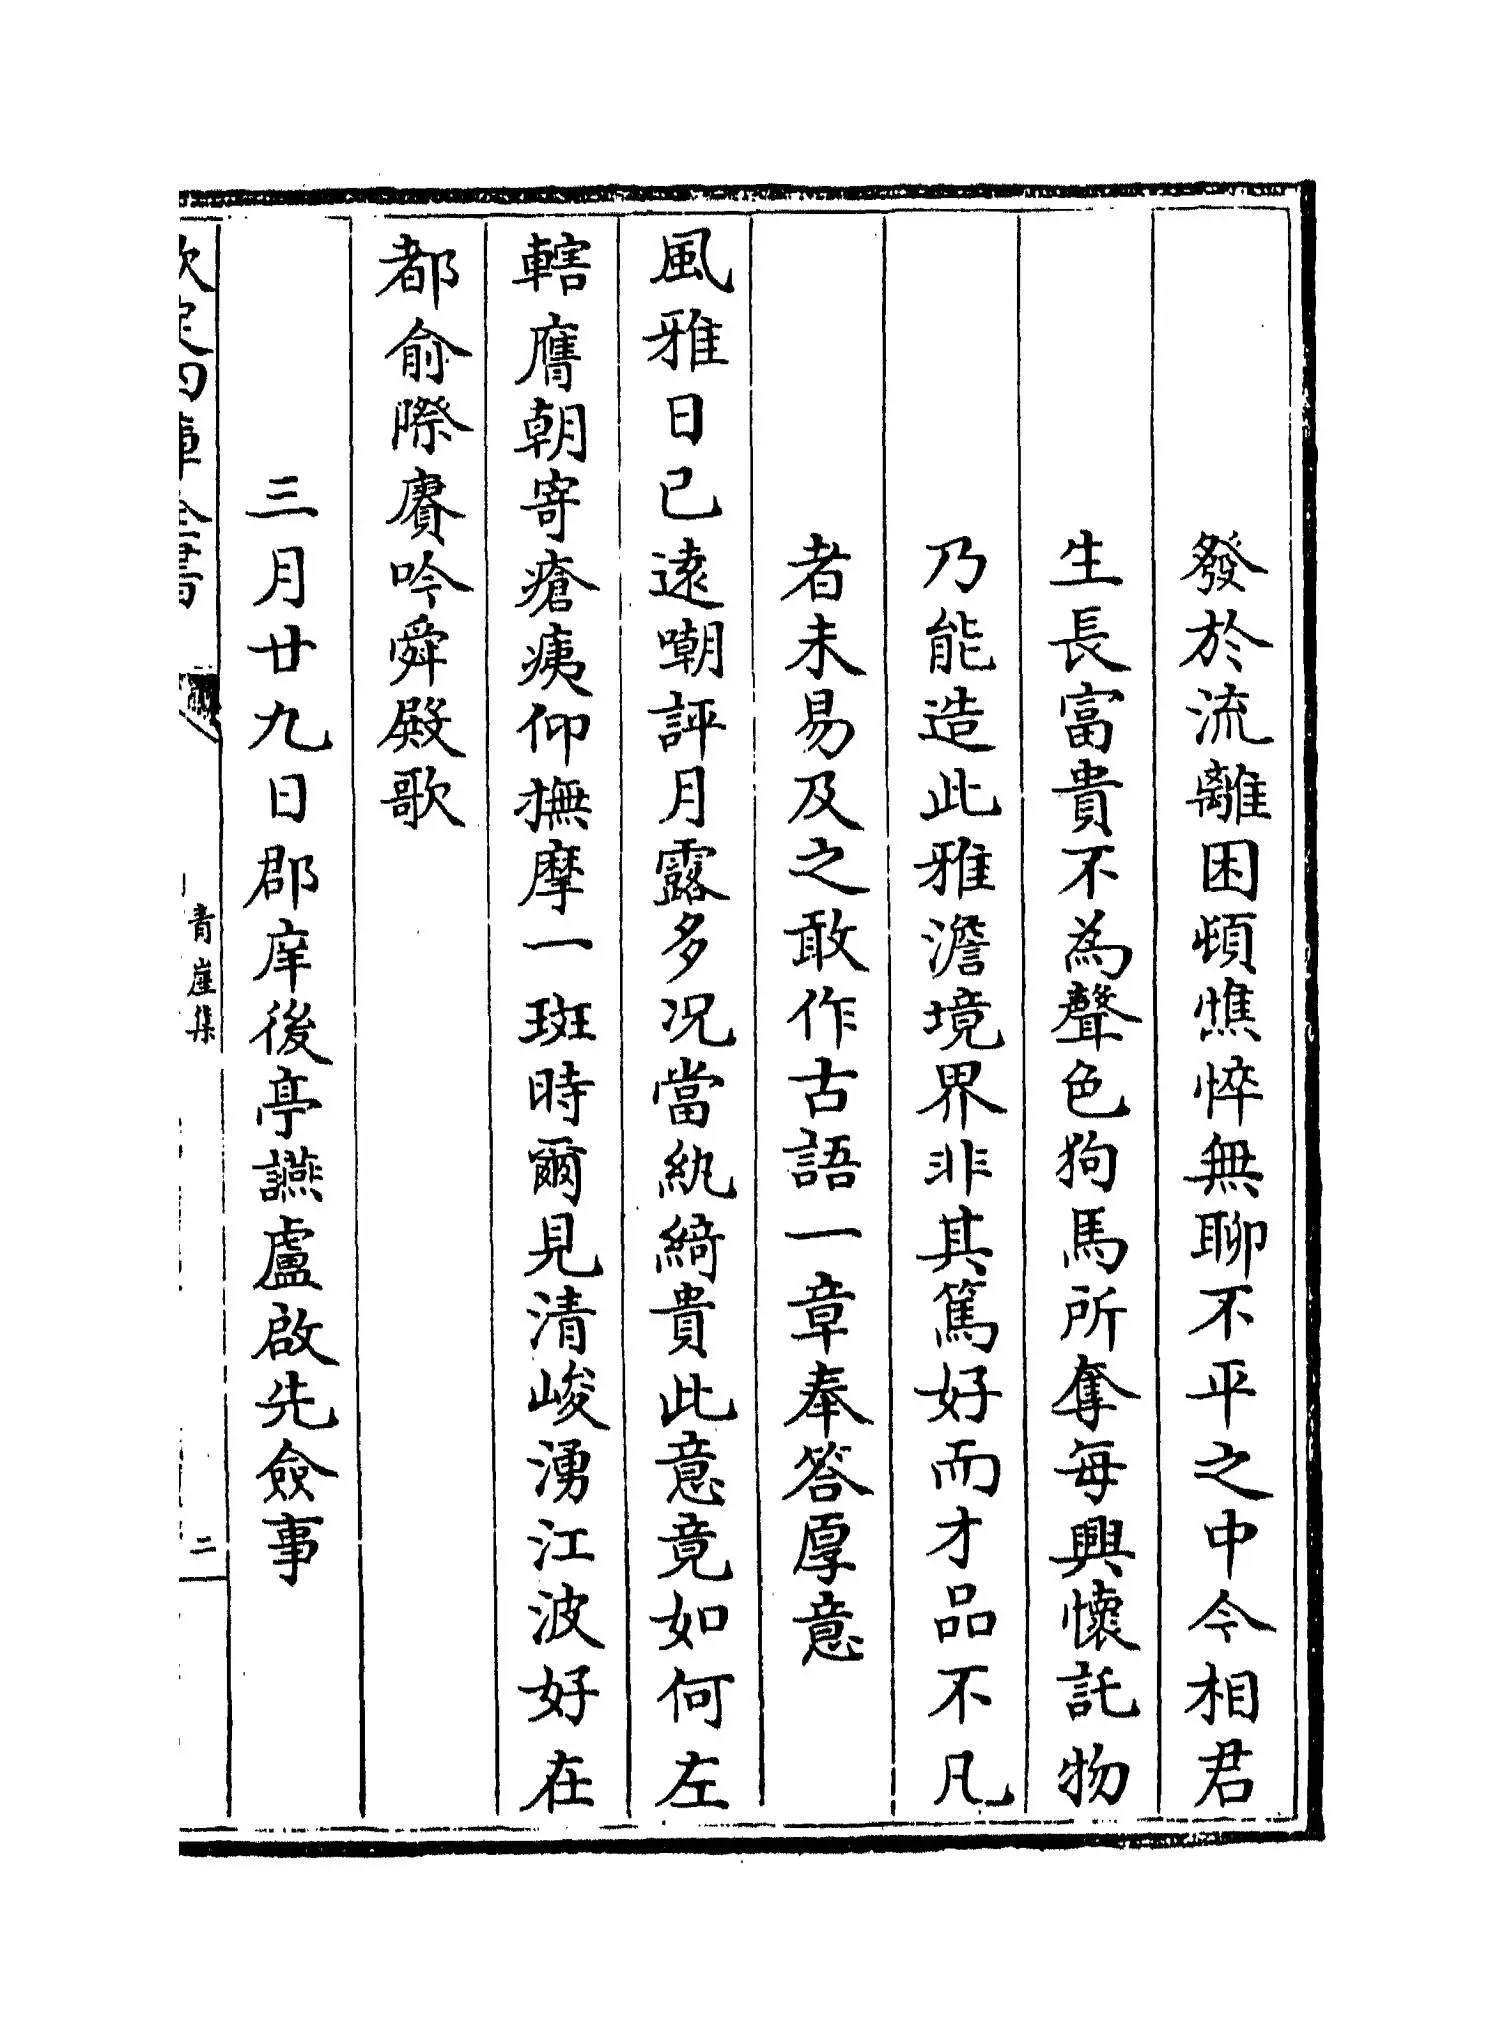 發於流離困頓憔悴無聊不平之中今相君
生長富貴不為聲色狗馬所奪每興懷託物
乃能造此雅澹境界非其篤好而才品不凡
者未易及之敢作古語一章奉答厚意
風雅日已遠嘲評月露多况當紈綺貴此意竟如何左
轄膺朝寄瘡痍仰撫摩一斑時爾見清峻湧江波好在
都俞際賡吟舜殿歌
三月廿九日郡庠後亭讌盧啟先僉事
欽定四庫全書
青崖集
二